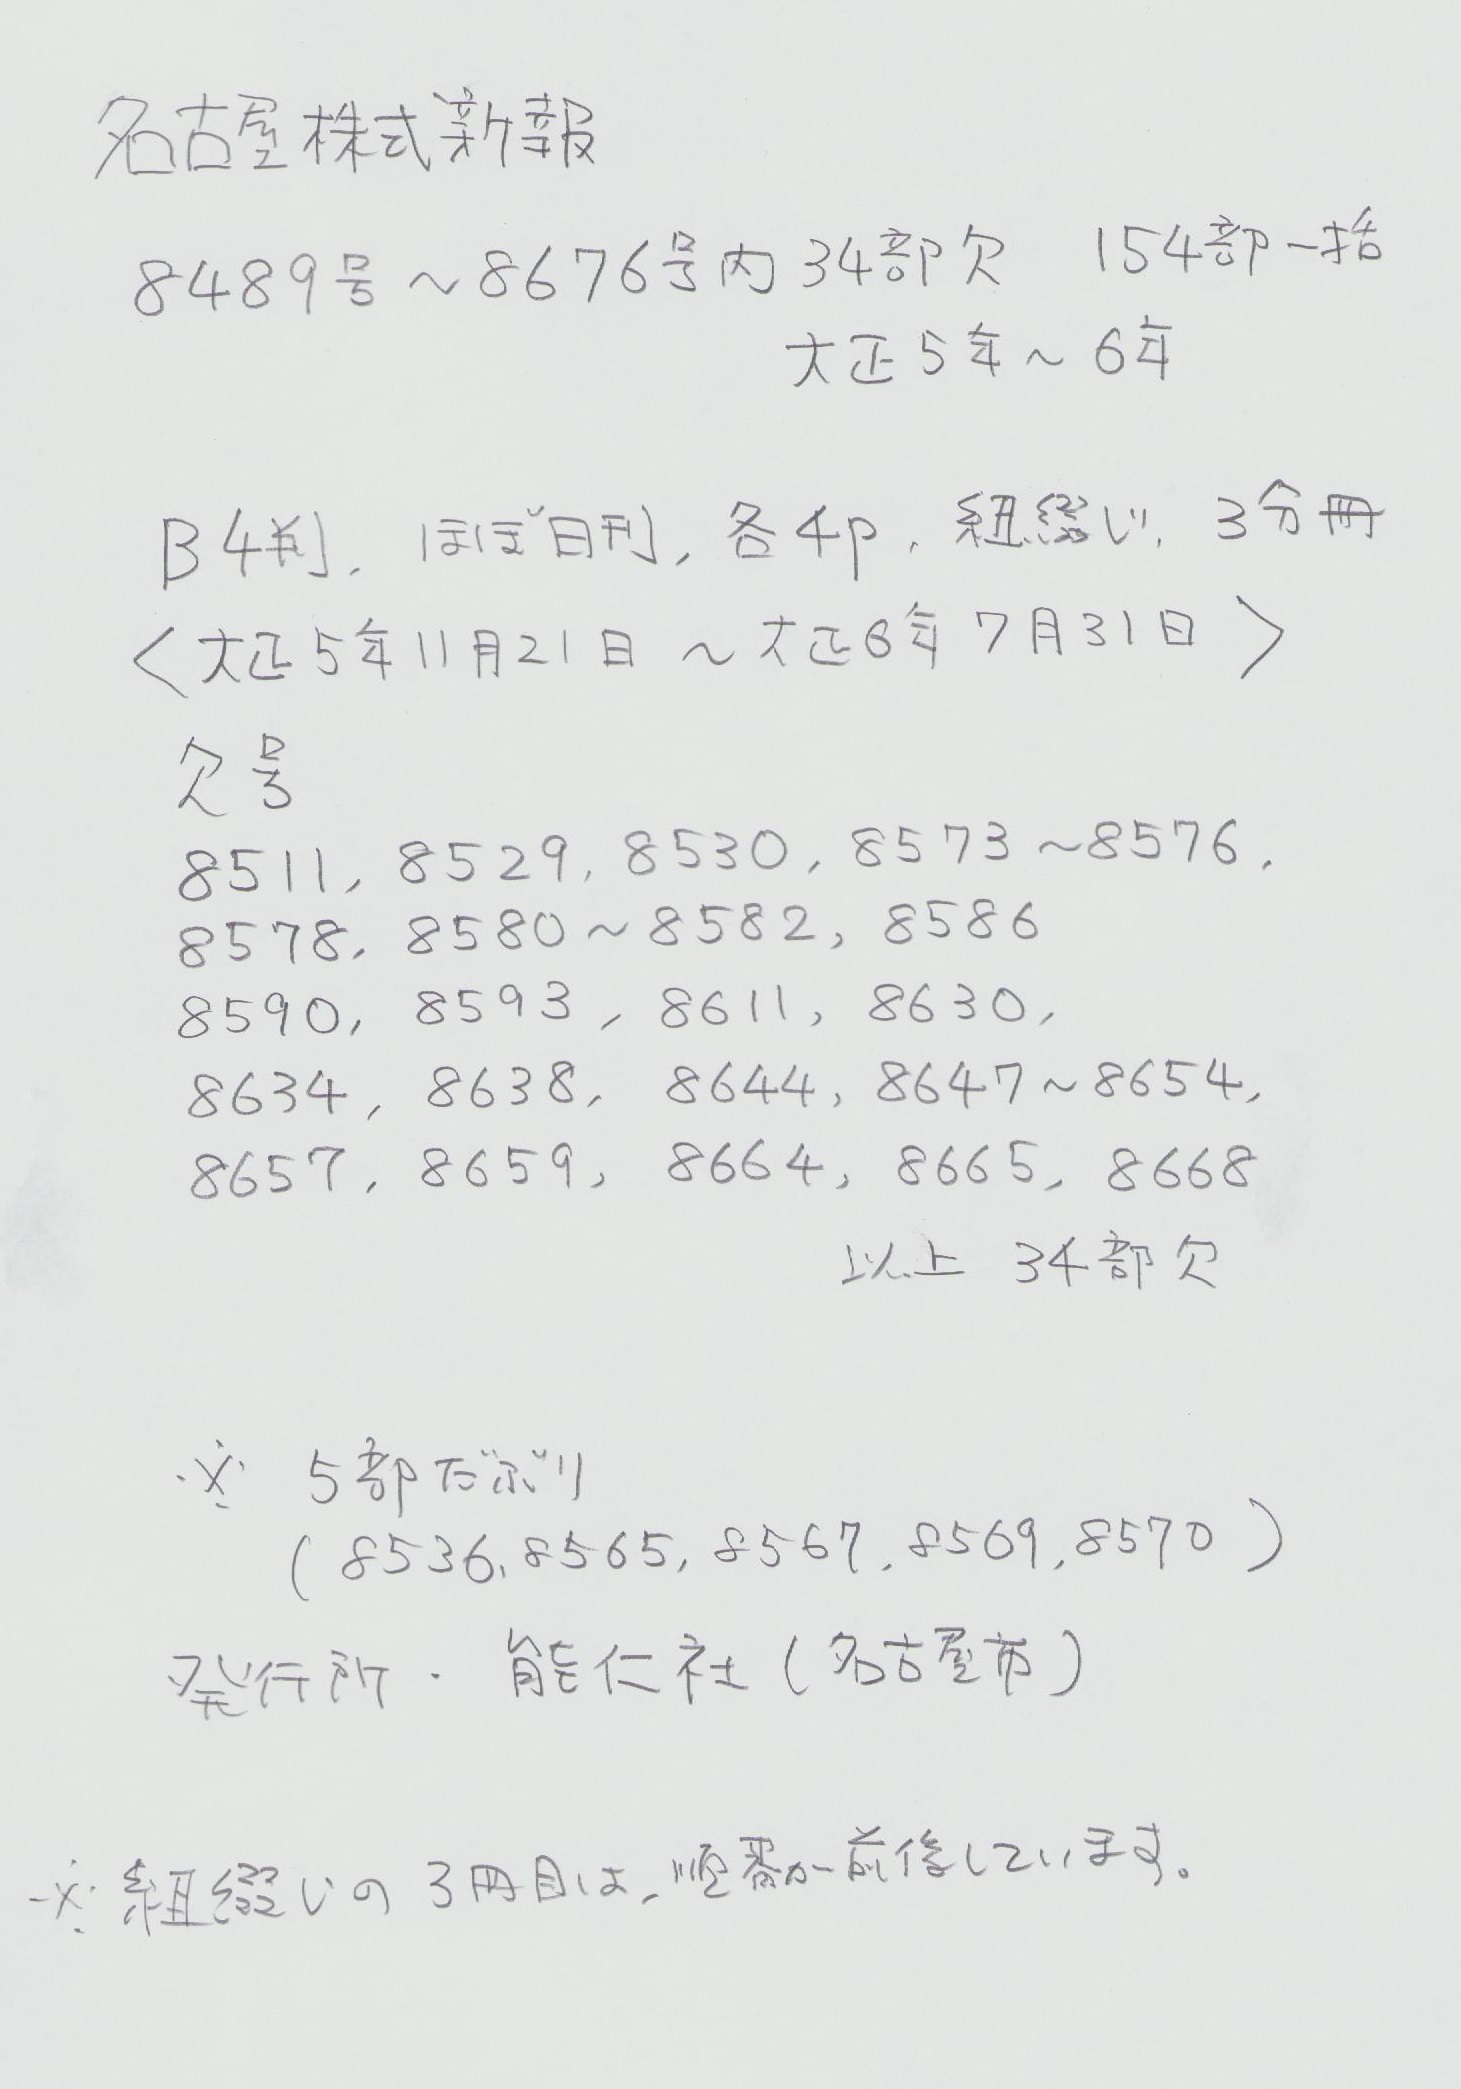 名古屋株式新報
8489号～8676号内34部欠　154部一括
大正5年～6年
B4判、ほぼ日刊、各4p、紐綴じ、3分冊
〈大正5年11月21日～大正6年7月31日〉
欠号
8511, 8529, 8530, 8573～8576,
8578, 8580～8582, 8586
8590, 8593, 8611, 8630,
8634, 8638, 8644, 8647～8654,
8657, 8659, 8664, 8665, 8668
以上 34部欠
※ 5部だぶり
(8536, 8565, 8567, 8569, 8570)
発行所・能仁社(名古屋市)
※紐綴じの3冊目は、順番が前後しています。